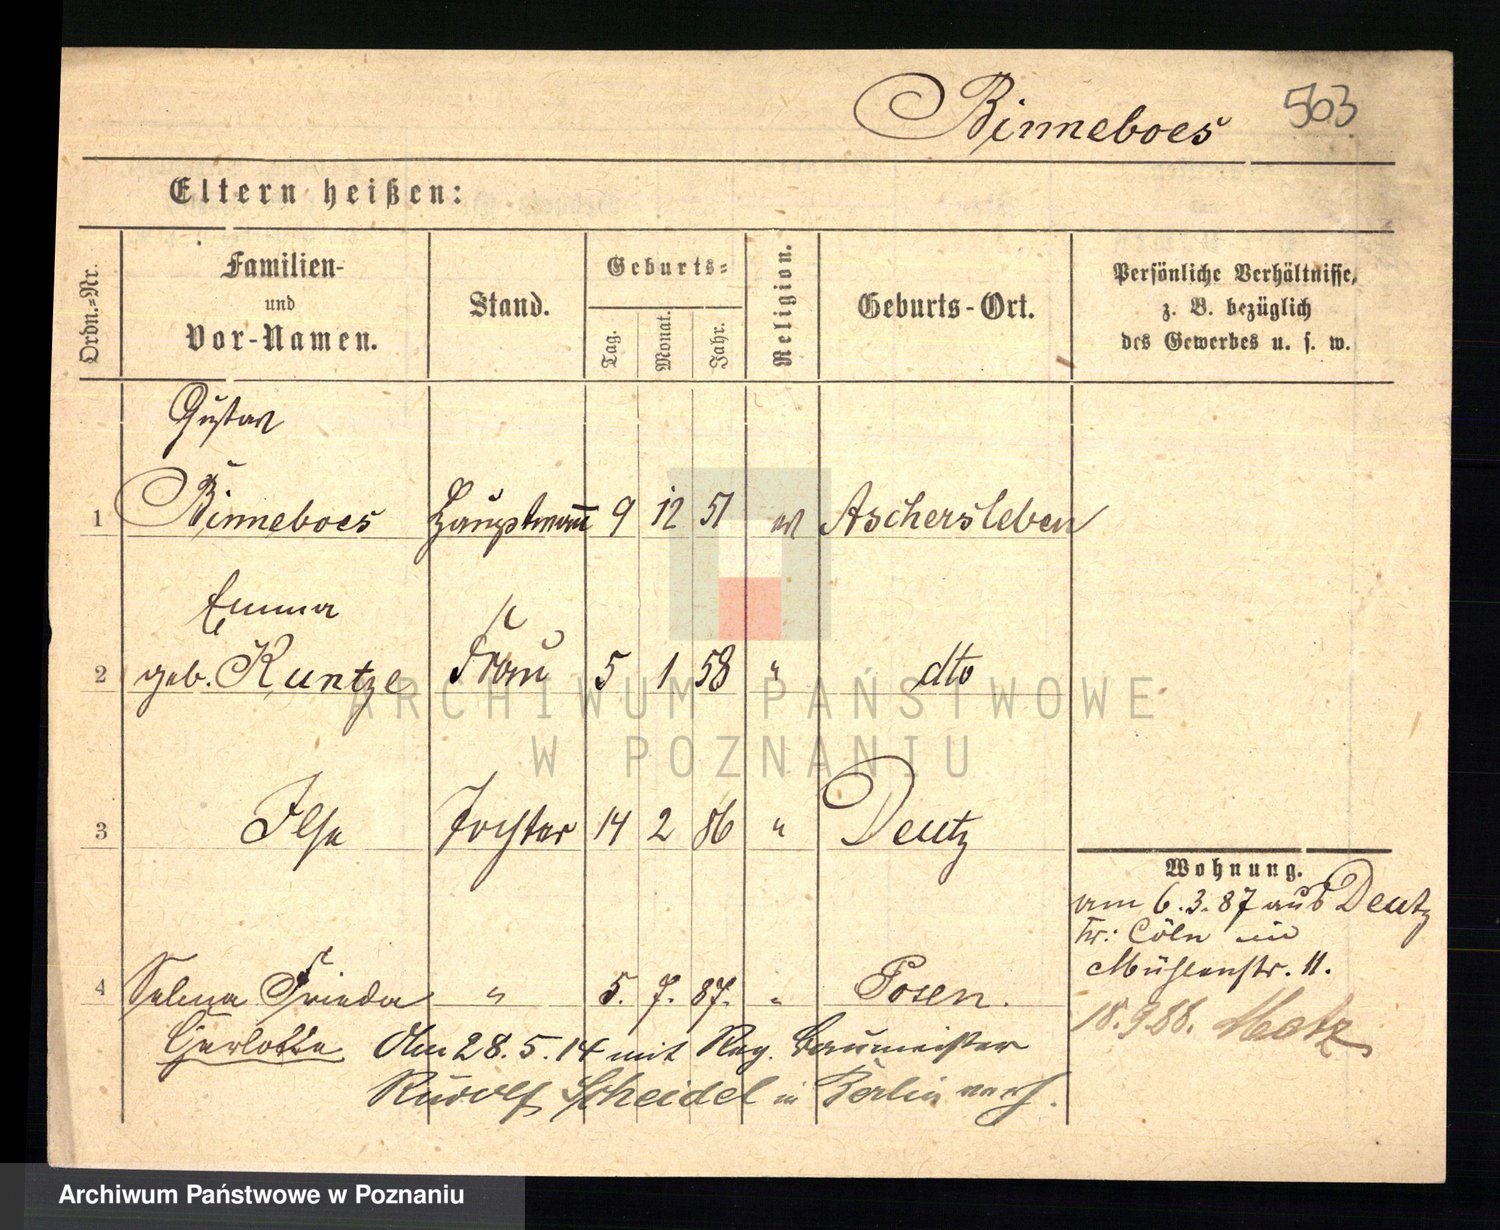 Binneboes 563
Eltern heißen:
Ordn.-Nr.
Familien-
und
Vor-Namen.
Stand.
Geburts-
Tag.
Monat.
Jahr.
Religion.
Geburts-Ort.
Persönliche Verhältnisse,
z. B. bezüglich
des Gewerbes u. s. w.
Gustav
1 Binneboes Hauptmann 9 12 51 ev Aschersleben
Emma
2 geb. Kuntze Frau 5 1 58 " dto
3 Ilse Tochter 14 2 86 " Deutz
Wohnung.
am 6.3.87 aus Deutz
Kr: Cöln in
Mühlenstr. 11.
18.9.88. Metz
4 Selma Frieda " 5. 7. 87. " Posen.
Charlotte Am 28.5.14 mit Reg. Baumeister
Rudolf Scheidel in Berlin verh.
ARCHIWUM PAŃSTWOWE
W POZNANIU
Archiwum Państwowe w Poznaniu